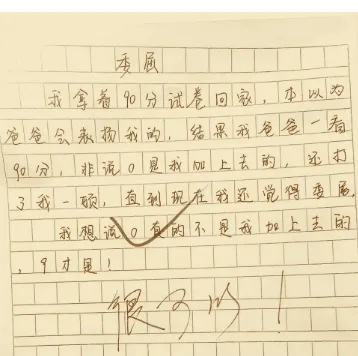 委屈
我拿着90分试卷回家，本以为
爸爸会表扬我的，结果我爸爸一看
90分，非说0是我加上去的，还打
了我一顿，直到现在我还觉得委屈，
我想说0真的不是我加上去的
，9才是！
很可以！